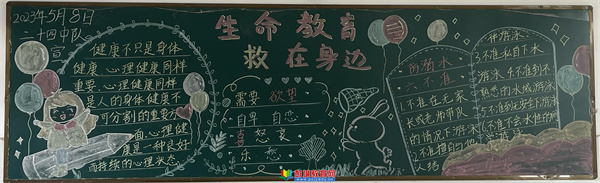 2023年5月8日
二十四中队
宣
生命教育
救在身边
健康不只是身体
健康、心理健康同样
重要、心理健康同样
是人的身体健康不
可分割的重要方
面 心理健
康是一种良好
而持续的心理状态
需要 欲望
自卑 自恋
喜 怒 哀
乐 愁
防溺水
六不准
1.不准在无家
长或老师带队
的情况下游泳
2.不准擅自与他
人结
伴游泳
3.不准私自下水
游泳 4.不准到不
熟悉的水域游泳
5.不准到无安全
6.不准不会水性的